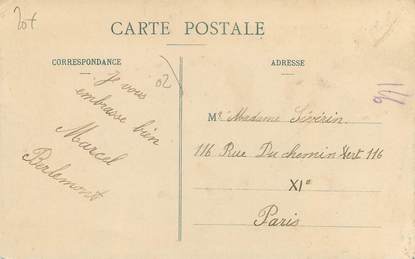 20f
CARTE POSTALE
CORRESPONDANCE
ADRESSE
02
Je vous
embrasse bien
Marcel
Berlemont
Mr Madame Sévérin
116 Rue Du chemin Vert 116
XIe
Paris